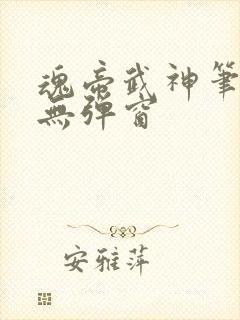 魂帝武神筆
無彈窗
安雅萍